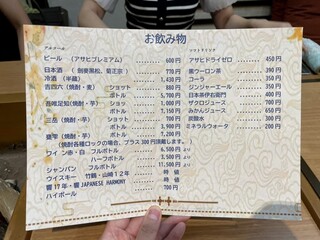 お飲み物
アルコール
ビール （アサヒプレミアム） 600円
日本酒 （ 剣菱黒松、菊正宗 ） 770円
冷酒 （半蔵） 1,430円
吉四六（焼酎・麦） ショット 880円
ボトル 5,700円
吾唯足知(焼酎・芋) ショット 700円
ボトル 7,150円
三岳（焼酎・芋） ショット
ボトル 3,900円
蔵（焼酎・芋） ボトル 7,700円
（焼酎各種ロックの場合、プラス300円頂戴します。）
ワイン 赤・白 フルボトル 6,200円
ハーフボトル 3,500円
シャンパン フルボトル 11,500円
ウイスキー 竹鶴・山崎１２年 時価
響17年・響 JAPANESE HARMONY 時価
ハイボール 700円
ソフトドリンク
アサヒドライゼロ 450円
黒ウーロン茶 390円
コーラ 350円
ジンジャーエール 350円
日本茶伊右衛門 350円
ザクロジュース 700円
みかんジュース 650円
炭酸水 300円
ミネラルウォータ 200円